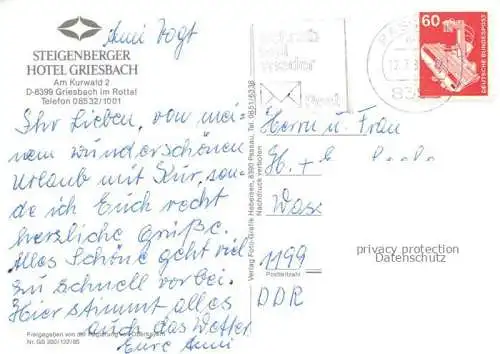 Anni Vogt
STEIGENBERGER
HOTEL GRIESBACH
Am Kurwald 2
D-8399 Griesbach im Rottal
Telefon 08532/1001
Ihr Lieben, von mei-
nem wunderschönen
Urlaub mit Kur, sen-
de ich Euch recht
herzliche Grüße.
Alles Schöne geht viel
zu schnell vorbei.
Hier stimmt alles
auch das Wetter
Eure Anni
Freigegeben von der Regierung von Oberbayern
Nr. GS 300/132/85
Verlag Foto-Grafik Hebeisen, 8390 Passau, Tel. 0851/
Nachdruck verboten
schreib
mal
wieder
Post
60
DEUTSCHE BUNDESPOST
Herrn u. Frau
H. +
1199
Postleitzahl
DDR
privacy protection
Datenschutz